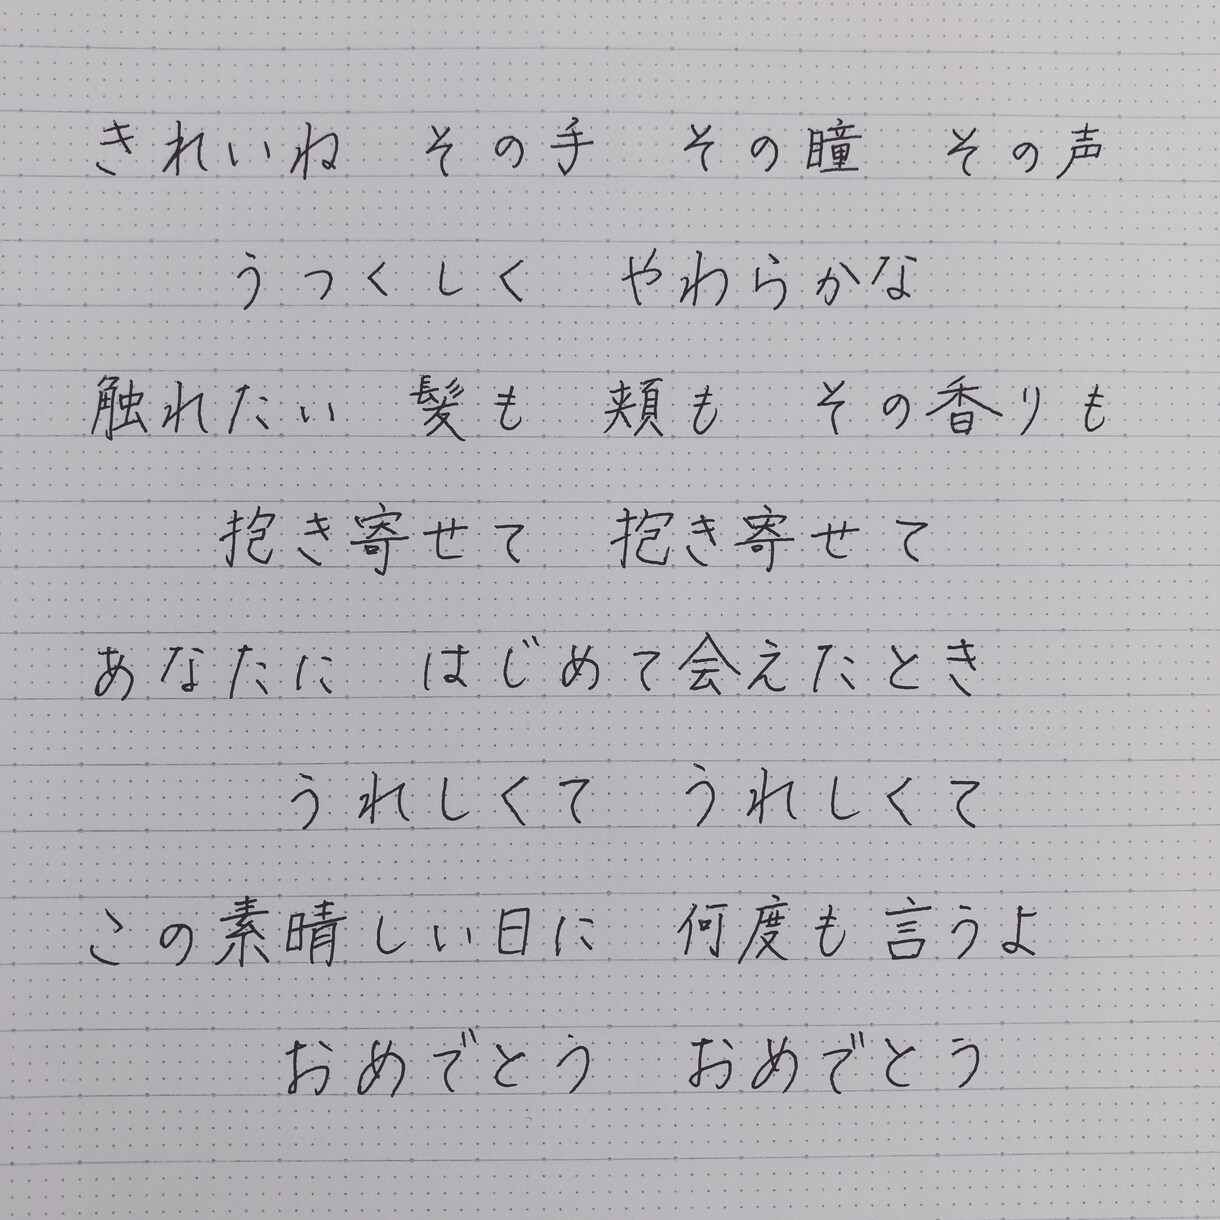 きれいね　その手　その瞳　その声
うつくしく　やわらかな
触れたい　髪も　頬も　その香りも
抱き寄せて　抱き寄せて
あなたに　はじめて会えたとき
うれしくて　うれしくて
この素晴しい日に　何度も言うよ
おめでとう　おめでとう